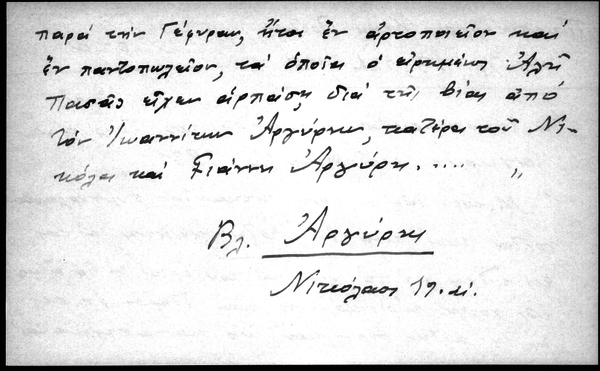 παρά την Γέφυραν, ἤτοι ἕν ἀρτοποιεῖον καί
ἕν παντοπωλεῖον, τά ὁποῖα ὁ εἰρημένος Ἀλῆ
Πασᾶς εἶχεν ἁρπάση διά τῆς βίας ἀπό
τόν Ἰωαννίτην Ἀργύρην, πατέρα τοῦ Νι-
κόλα καί Γιάννη Ἀργύρη. .... "
Βλ. Ἀργύρης
Νικόλαος